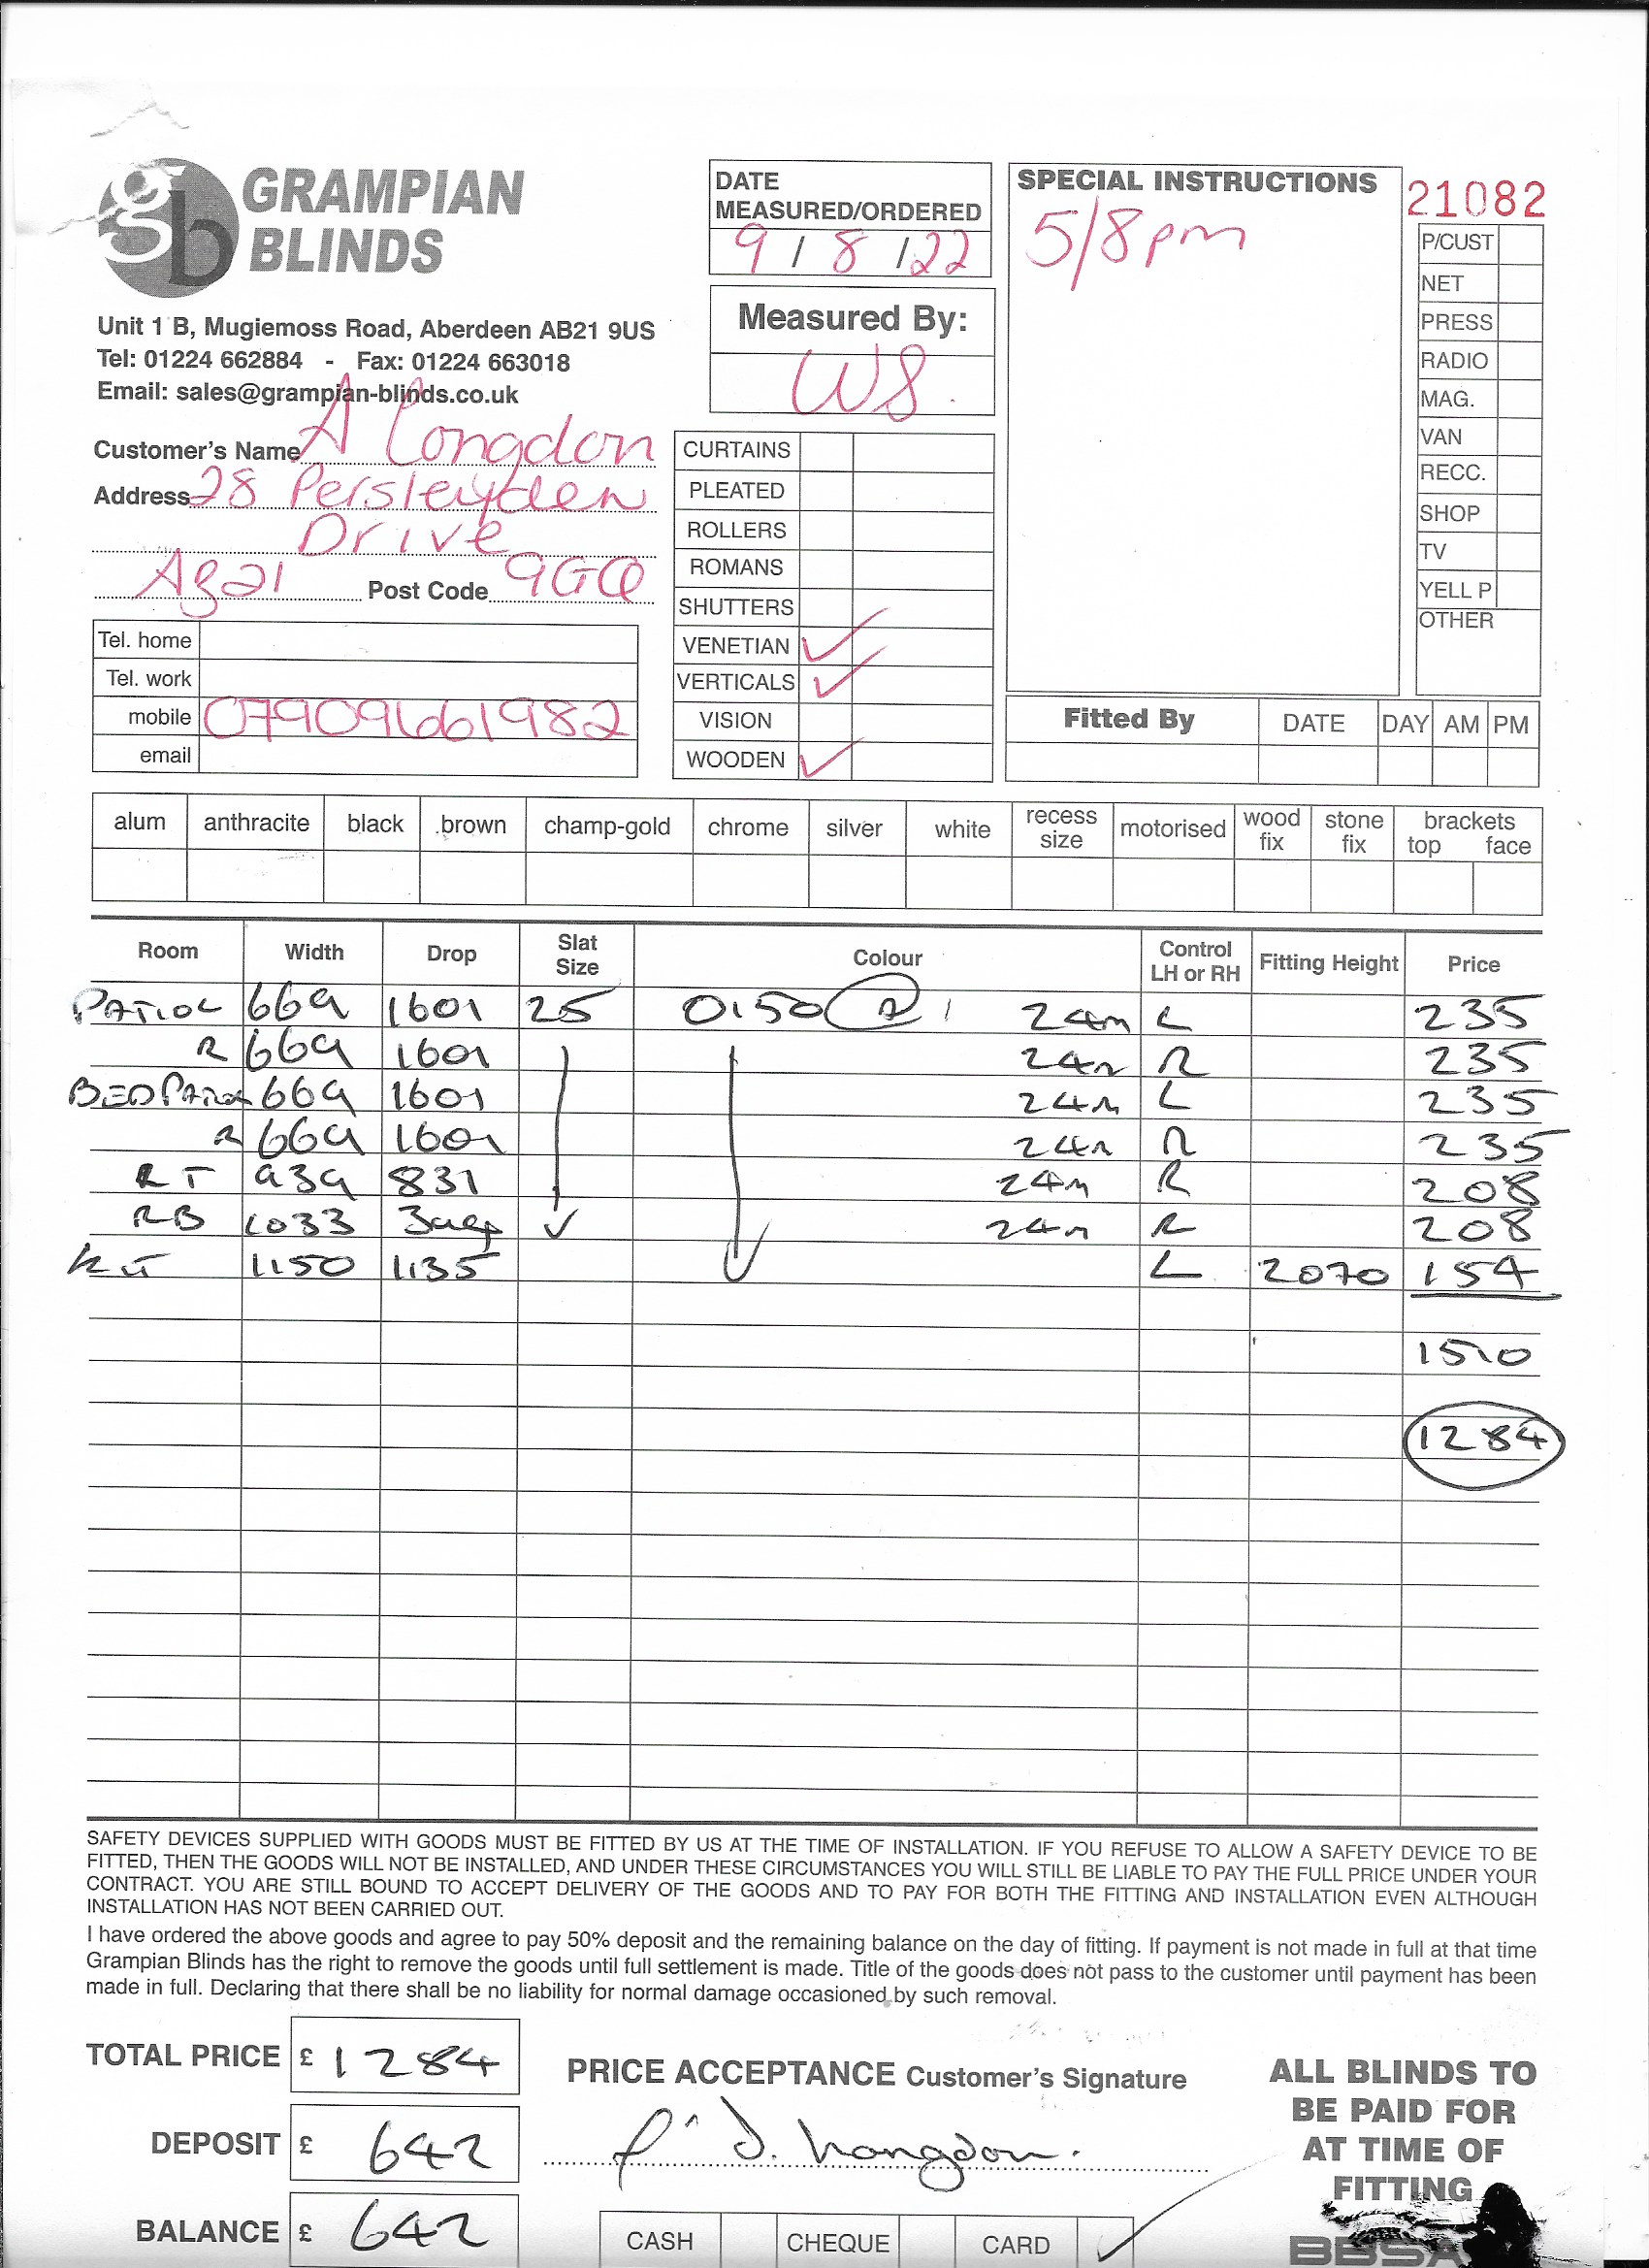 gb GRAMPIAN BLINDS
Unit 1 B, Mugiemoss Road, Aberdeen AB21 9US
Tel: 01224 662884 - Fax: 01224 663018
Email: sales@grampian-blinds.co.uk
Customer's Name A Longdon
Address 28 Persleyden
Drive
AB21 Post Code 9GQ
Tel. home
Tel. work
mobile 07909661982
email
DATE
MEASURED/ORDERED
9 / 8 / 22
Measured By:
WS.
CURTAINS
PLEATED
ROLLERS
ROMANS
SHUTTERS
VENETIAN ✓
VERTICALS ✓
VISION
WOODEN ✓
SPECIAL INSTRUCTIONS
5/8pm
21082
P/CUST
NET
PRESS
RADIO
MAG.
VAN
RECC.
SHOP
TV
YELL P
OTHER
Fitted By DATE DAY AM PM
alum anthracite black brown champ-gold chrome silver white recess size motorised wood fix stone fix brackets top face
Room Width Drop Slat Size Colour Control LH or RH Fitting Height Price
PATIO L 669 1601 25 0150 24m L 235
R 669 1601 24m R 235
BED 669 1601 24m L 235
R 669 1601 24m R 235
RT 939 831 24m R 208
RB 1033 24m R 208
KIT 1150 1135 L 2070 154
1510
1284
SAFETY DEVICES SUPPLIED WITH GOODS MUST BE FITTED BY US AT THE TIME OF INSTALLATION. IF YOU REFUSE TO ALLOW A SAFETY DEVICE TO BE
FITTED, THEN THE GOODS WILL NOT BE INSTALLED, AND UNDER THESE CIRCUMSTANCES YOU WILL STILL BE LIABLE TO PAY THE FULL PRICE UNDER YOUR
CONTRACT. YOU ARE STILL BOUND TO ACCEPT DELIVERY OF THE GOODS AND TO PAY FOR BOTH THE FITTING AND INSTALLATION EVEN ALTHOUGH
INSTALLATION HAS NOT BEEN CARRIED OUT.
I have ordered the above goods and agree to pay 50% deposit and the remaining balance on the day of fitting. If payment is not made in full at that time
Grampian Blinds has the right to remove the goods until full settlement is made. Title of the goods does not pass to the customer until payment has been
made in full. Declaring that there shall be no liability for normal damage occasioned by such removal.
TOTAL PRICE £ 1284
DEPOSIT £ 642
BALANCE £ 642
PRICE ACCEPTANCE Customer's Signature
CASH CHEQUE CARD ✓
ALL BLINDS TO
BE PAID FOR
AT TIME OF
FITTING
BBSA